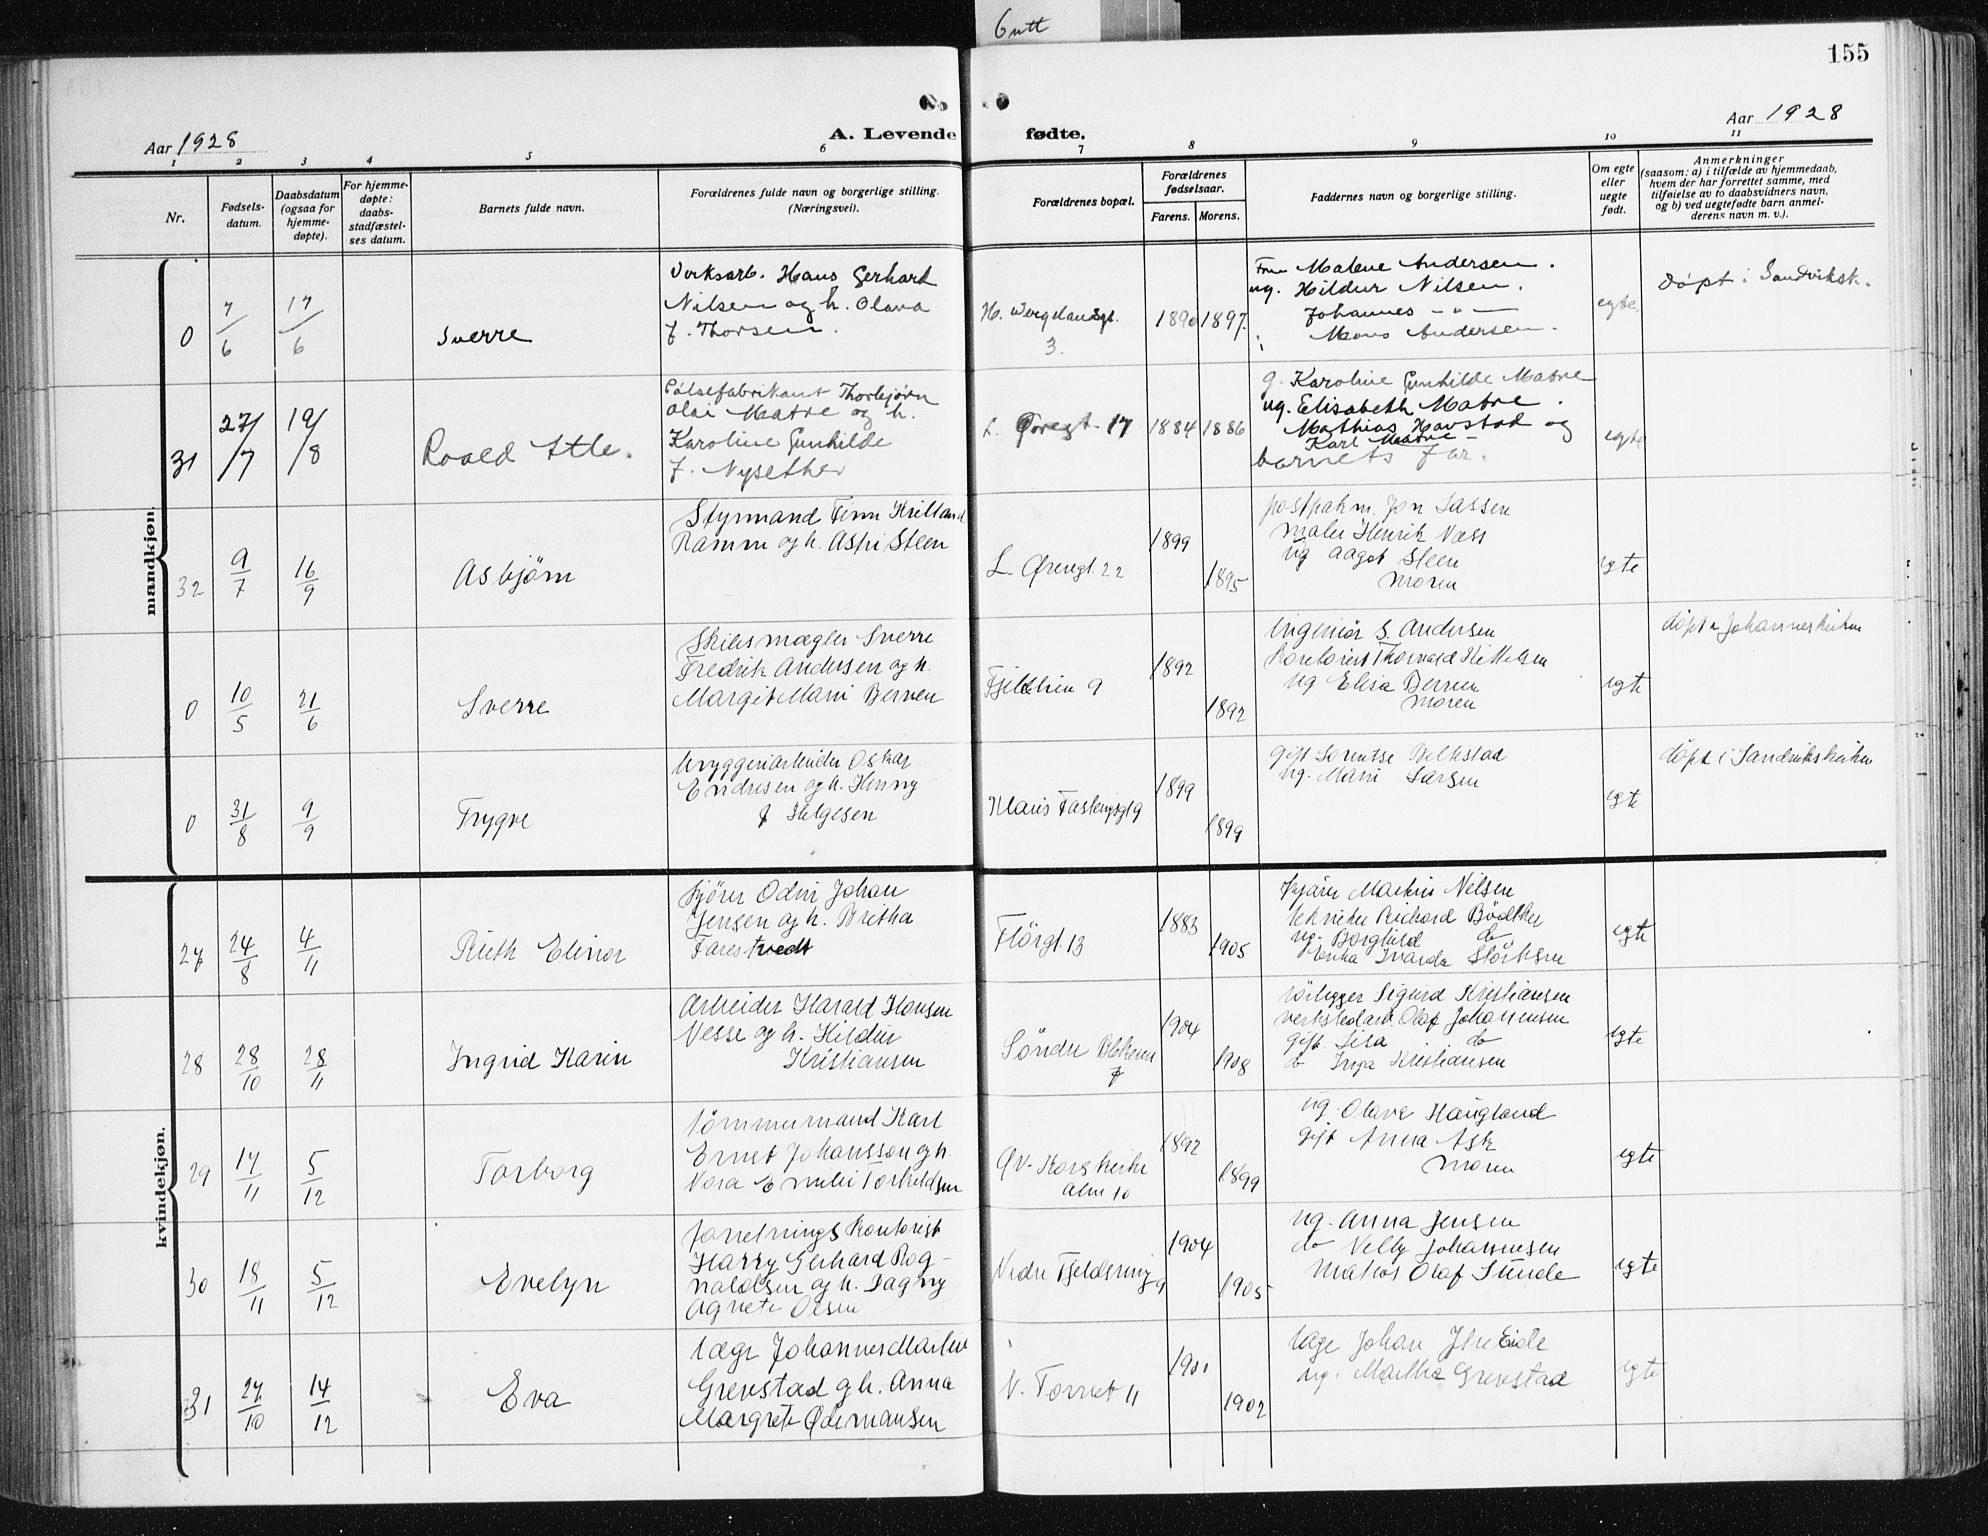 Gutt
155
Aar 1928
A. Levende fødte.
Aar 1928
1 2 3 4 5 6 7 8 9 10 11
Nr.
Fødsels-
datum.
Daabsdatum
(ogsaa for
hjemme-
døpte).
For hjemme-
døpte:
daabs-
stadfæstel-
ses datum.
Barnets fulde navn.
Forældrenes fulde navn og borgerlige stilling.
(Næringsvei).
Forældrenes bopæl.
Forældrenes
fødselsaar.
Farens. Morens.
Faddernes navn og borgerlige stilling.
Om egte
eller
uegte
født.
Anmerkninger
(saasom: a) i tilfælde av hjemmedaab,
hvem der har forrettet samme, med
tilføielse av to daabsvidners navn,
og b) ved uegtefødte barn anmel-
derens navn m. v.).
mandkjøn.
0
7/6
17/6
Sverre
Verksarb. Hans Gerhard
Nilsen og h. Olava
f. Thorsen.
H. Wergelandsgt.
3.
1890
1897.
Fru Malene Andersen.
ug. Hildur Nilsen.
Johannes - " -
Mons Andersen.
egte
Døpt i Sandviksk.
31
27/7
19/8
Roald Atle.
Pølsefabrikant Thorbjørn
Olai Matre og h.
Karoline Gunhilde
f. Nysether
L. Øregt. 17
1884
1886
g. Karoline Gunhilde Matre
ug. Elisabeth Matre.
Mathias Havstad og
Karl Matre -
barnets far.
egte
32
9/7
16/9
Asbjørn
Styrmand Finn Krilland
Ramm og h. Aspi Steen
L. Øregt. 22
1899
1895
postpakm. Jon Lassen
maler Henrik Næss
ug Aagot Steen
moren
egte
0
10/5
21/6
Sverre
Skibsmægler Sverre
Fredrik Andersen og h.
Margit Marie Berven
Fjeldlien 9
1892
1892
Ingeniør S. Andersen
Kontorist Thorvald Kittelsen
ug Elisa Berven
moren
egte
døpt i Johanneskirken
0
31/8
9/9
Trygve
bryggeriarbeider Oskar
Endresen og h. Henny
f Helgesen
Klaus Fastingsgt 9
1899
1899
gift Lorentse
ug. Marie Larsen
egte
døpt i Sandvikskirken
kvindekjøn.
27
24/8
4/11
Ruth Elinor
kjører Odin Johan
Jensen og h. Britha
Farestvedt
Flörgt. 13
1883
1905
kjører Markus Nilsen
tekniker Richard Bödtker
ug. Borghild do
Erika Ivarda Störksen
egte
28
28/10
28/11
Ingrid Karin
Arbeider Harald Hansen
Nesse og h. Hildur
Kristiansen
Söndre Blekevei
7
1904
1908
rörlegger Sigurd Kristiansen
verkstedarb. Olaf Johannesen
gift. Lisa do
do Inga Kristiansen
egte
29
17/11
5/12
Torborg
tømmermand Karl
Ernst Johansson og h.
Nora Emilie Torkildsen
Øv. Korskirke
alm 10
1892
1899
ug. Olave Haugland
gift Anna Ask
moren
egte
30
18/11
5/12
Evelyn
forretnings Kontorist
Harry Gerhard Rog-
naldsen og h. Dagny
Agnete Olsen
Nedre Fjeldsmug
9
1904
1905
ug. Anna Jensen
do Nelly Johannesen
matros Olaf Sunde
egte
31
27/10
14/12
Eva
læge Johannes Martin
Grevstad og h. Anna
Margrete Ødemansen
N. Torvet 11
1901
1902
læge Johan Eide
ug. Martha Grevstad
egte